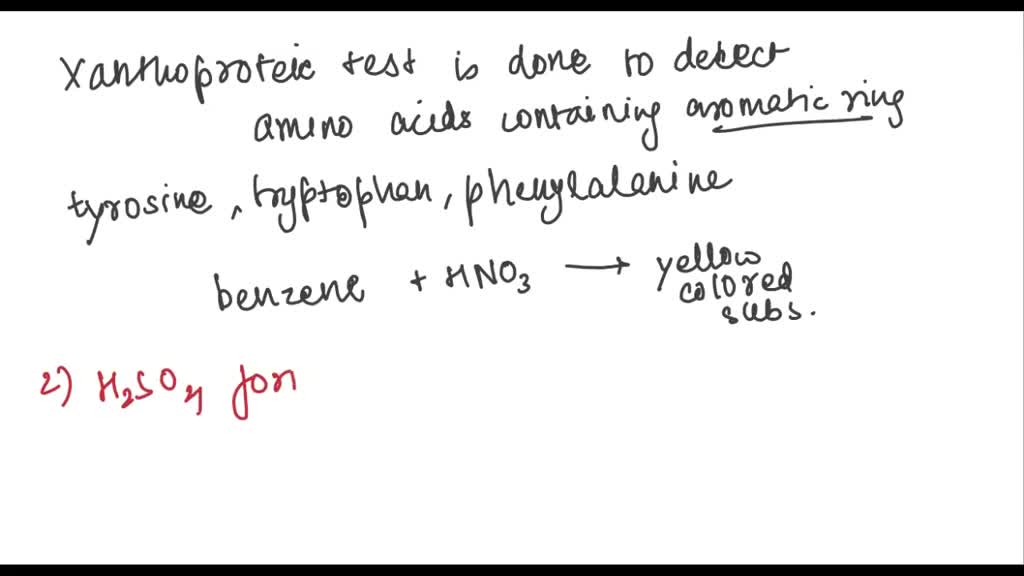 Xanthoproteic test is done to detect
amino acids containing aromatic ring
tyrosine, tryptophan, phenylalanine
benzene + HNO3 → yellow
colored
subs.
2) H2SO4 for